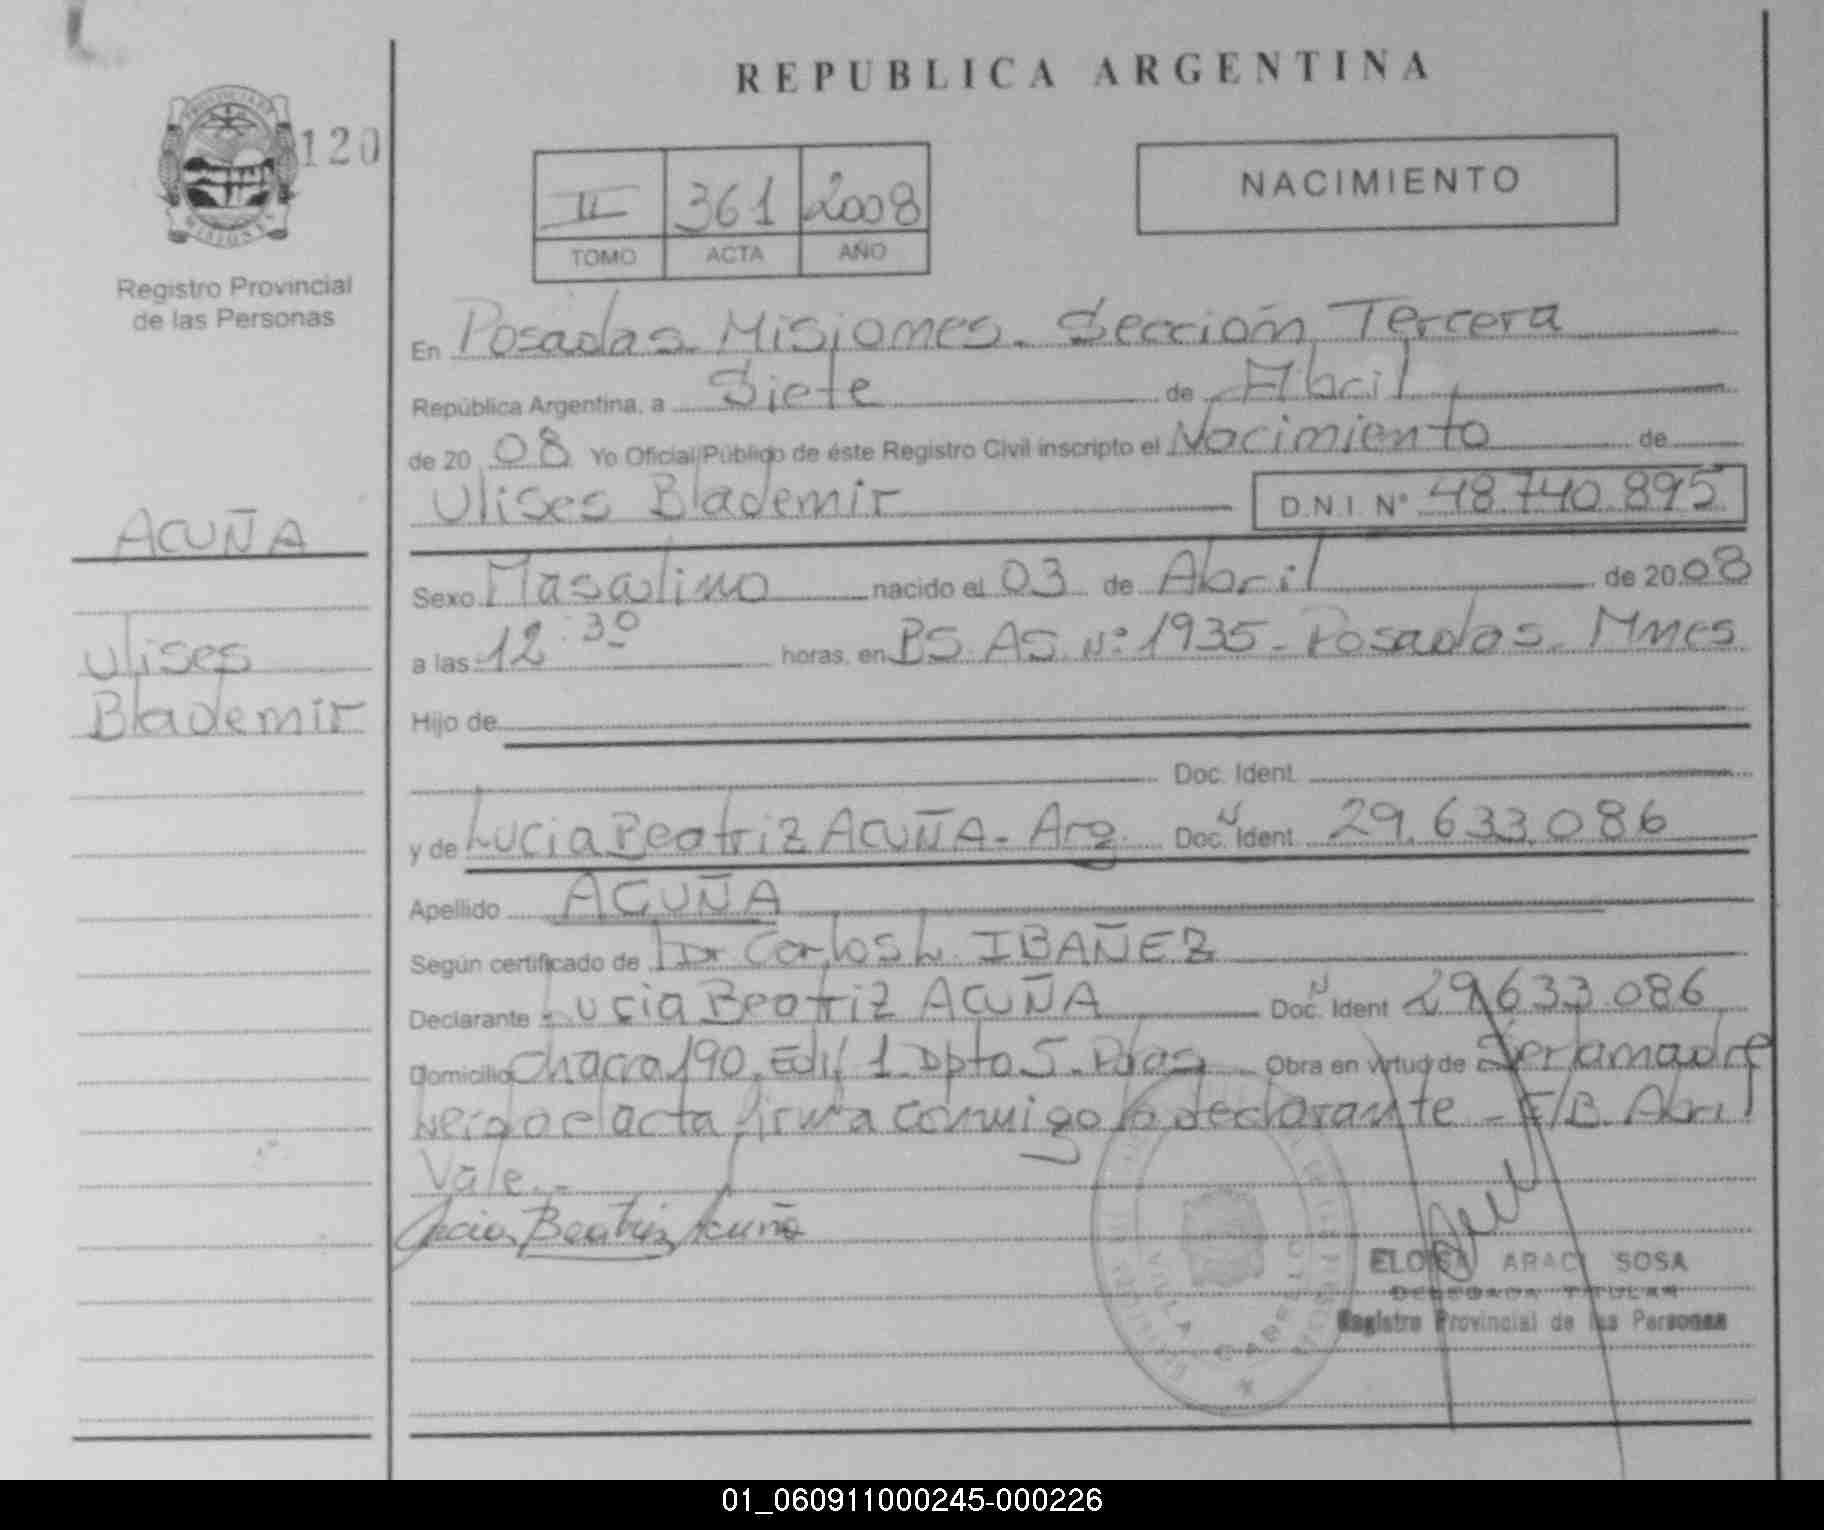 REPUBLICA ARGENTINA
PROVINCIA DE
MISIONES
120
Registro Provincial
de las Personas
II 361 2008
TOMO ACTA AÑO
NACIMIENTO
En Posadas Misiones. Sección Tercera
República Argentina, a Siete de Abril
de 20 08 Yo Oficial Público de éste Registro Civil inscripto el Nacimiento de
Ulises Blademir D.N.I. Nº 48.740.895
ACUÑA
Ulises
Blademir
Sexo Masculino nacido el 03 de Abril de 20 08
a las 12:30 horas, en BS. AS. Nº 1935 - Posadas. Mnes
Hijo de
Doc. Ident.
y de Lucia Beatriz ACUÑA - Arg. Doc. N Ident. 29.633.086
Apellido ACUÑA
Según certificado de Dr Carlos L. IBAÑEZ
Declarante Lucia Beatriz ACUÑA Doc. N Ident 29.633.086
Domicilio Chacra 190. Edif 1. Dpto 5. Pdas Obra en virtud de Ser la madre
leído el acta firma conmigo la declarante - E/B. Abril
Vale.-
Lucia Beatriz Acuña
VILLA CABELLO
ELOISA ARACI SOSA
DELEGADA TITULAR
Registro Provincial de las Personas
01_060911000245-000226